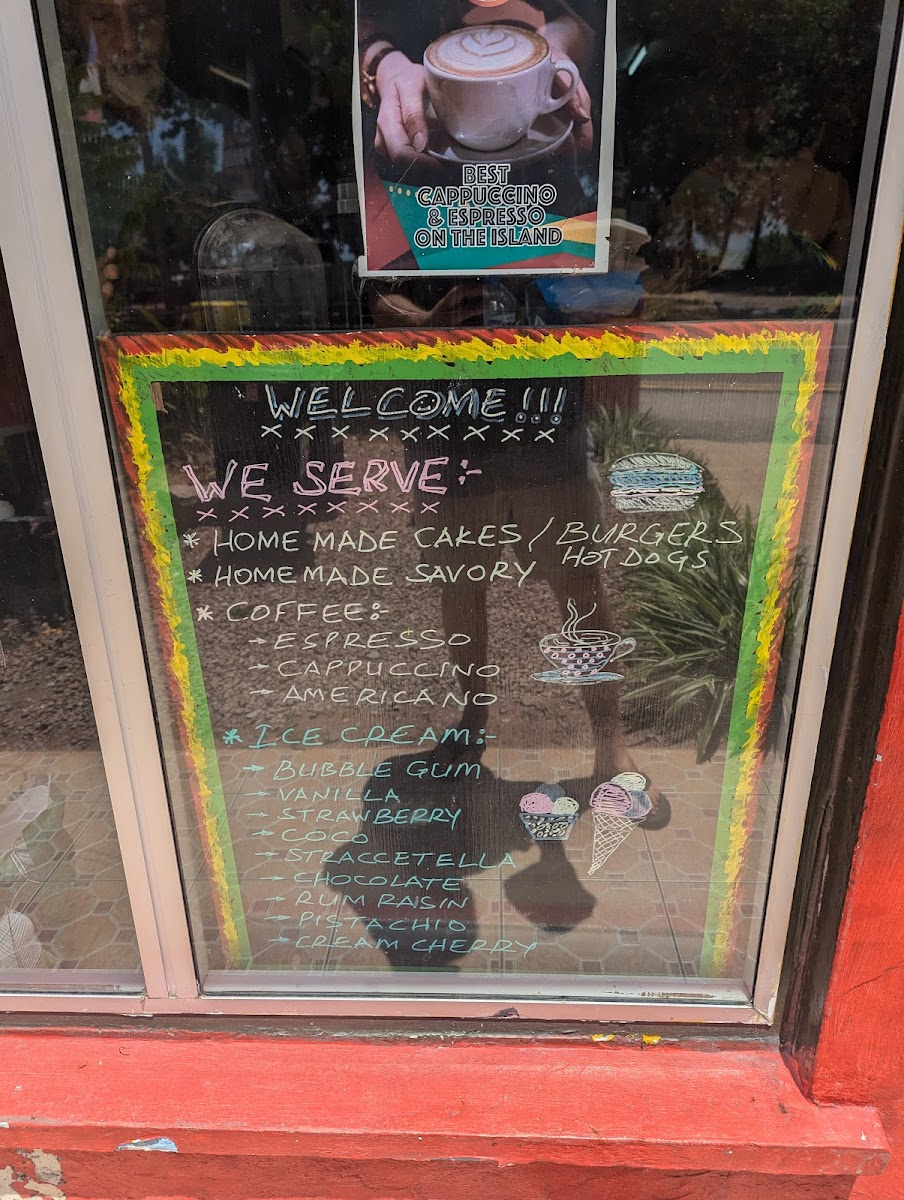 BEST
CAPPUCCINO
& ESPRESSO
ON THE ISLAND
WELCOME!!!
x x x x x x x x
WE SERVE:-
x x x x x x x x
* HOME MADE CAKES / BURGERS
HOT DOGS
* HOME MADE SAVORY
* COFFEE:-
→ ESPRESSO
→ CAPPUCCINO
→ AMERICANO
* ICE CREAM:-
→ BUBBLE GUM
→ VANILLA
→ STRAWBERRY
→ COCO
→ STRACCETELLA
→ CHOCOLATE
→ RUM RAISIN
→ PISTACHIO
→ CREAM CHERRY